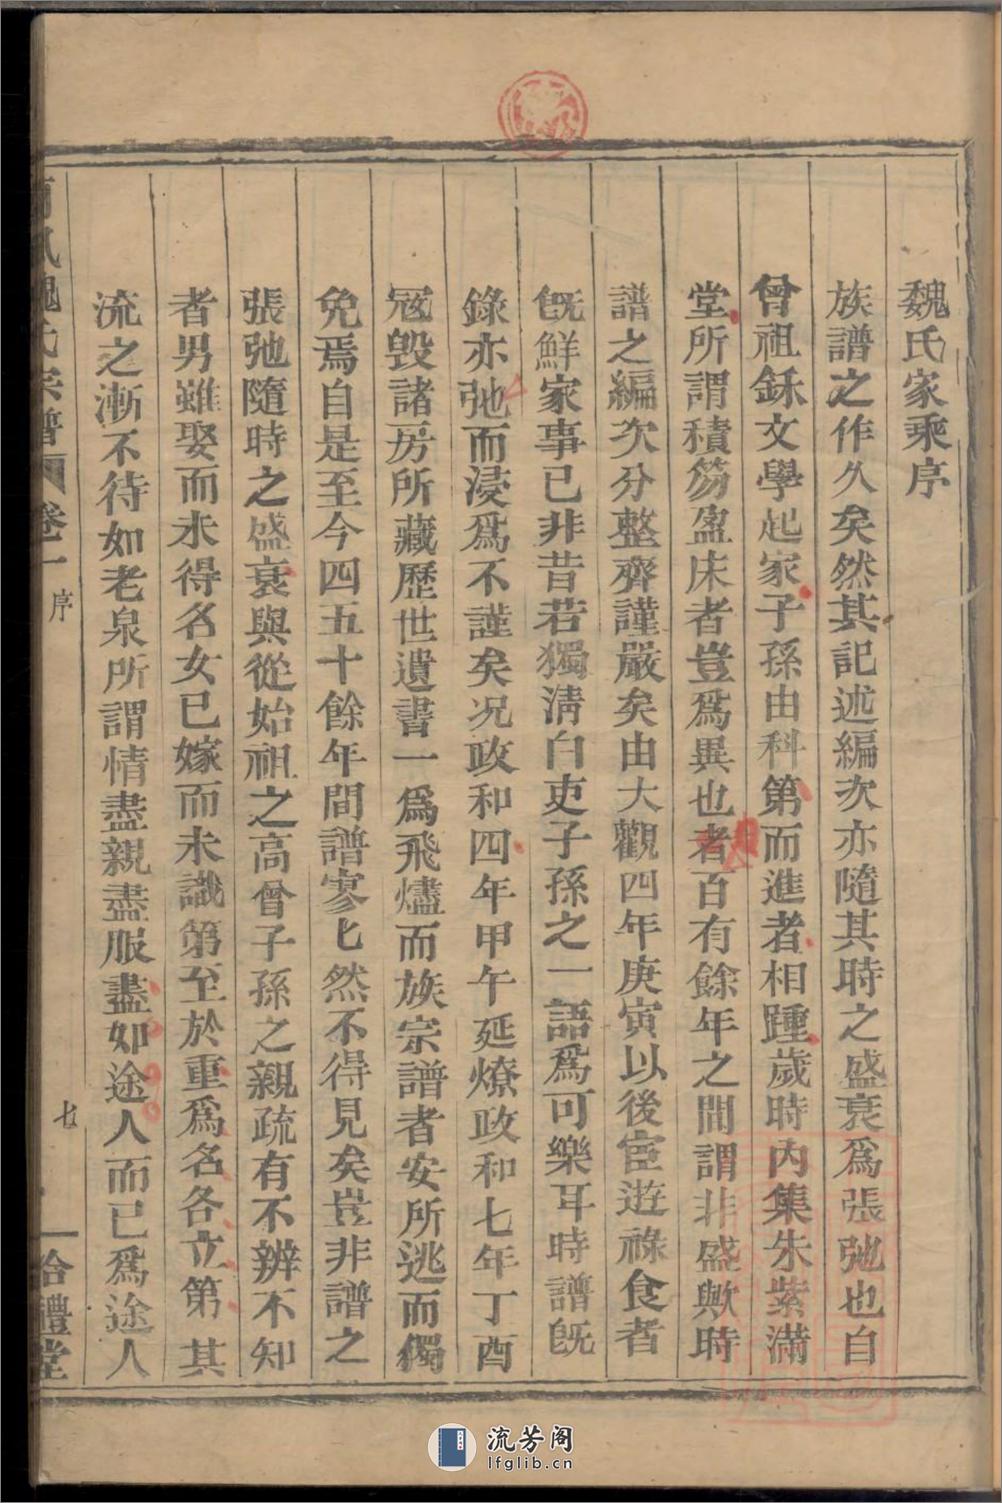 魏氏家乘序
族譜之作久矣然其記述編次亦隨其時之盛衰爲張弛也自
曾祖鉌文學起家子孫由科第而進者相踵歲時內集朱紫滿
堂所謂積笏盈床者豈爲異也者百有餘年之間謂非盛歟時
譜之編次分整齊謹嚴矣由大觀四年庚寅以後宦遊祿食者
旣鮮家事已非昔若獨淸白吏子孫之一語爲可樂耳時譜旣
錄亦弛而浸爲不謹矣况政和四年甲午延燎政和七年丁酉
寇毀諸房所藏歷世遺書一爲飛燼而族宗譜者安所逃而獨
免焉自是至今四五十餘年間譜寥匕然不得見矣豈非譜之
張弛隨時之盛衰與從始祖之高曾子孫之親疏有不辨不知
者男雖娶而未得名女已嫁而未識第至於重爲名各立第其
流之漸不待如老泉所謂情盡親盡服盡如途人而已爲途人
魏氏宗譜 卷一 序 七 合禮堂
流芳阁
lfglib.cn